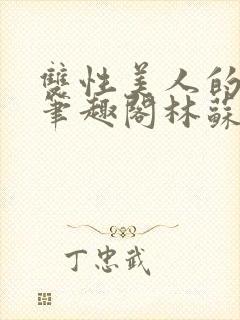 雙性美人的
筆趣閣林蘇
丁忠武